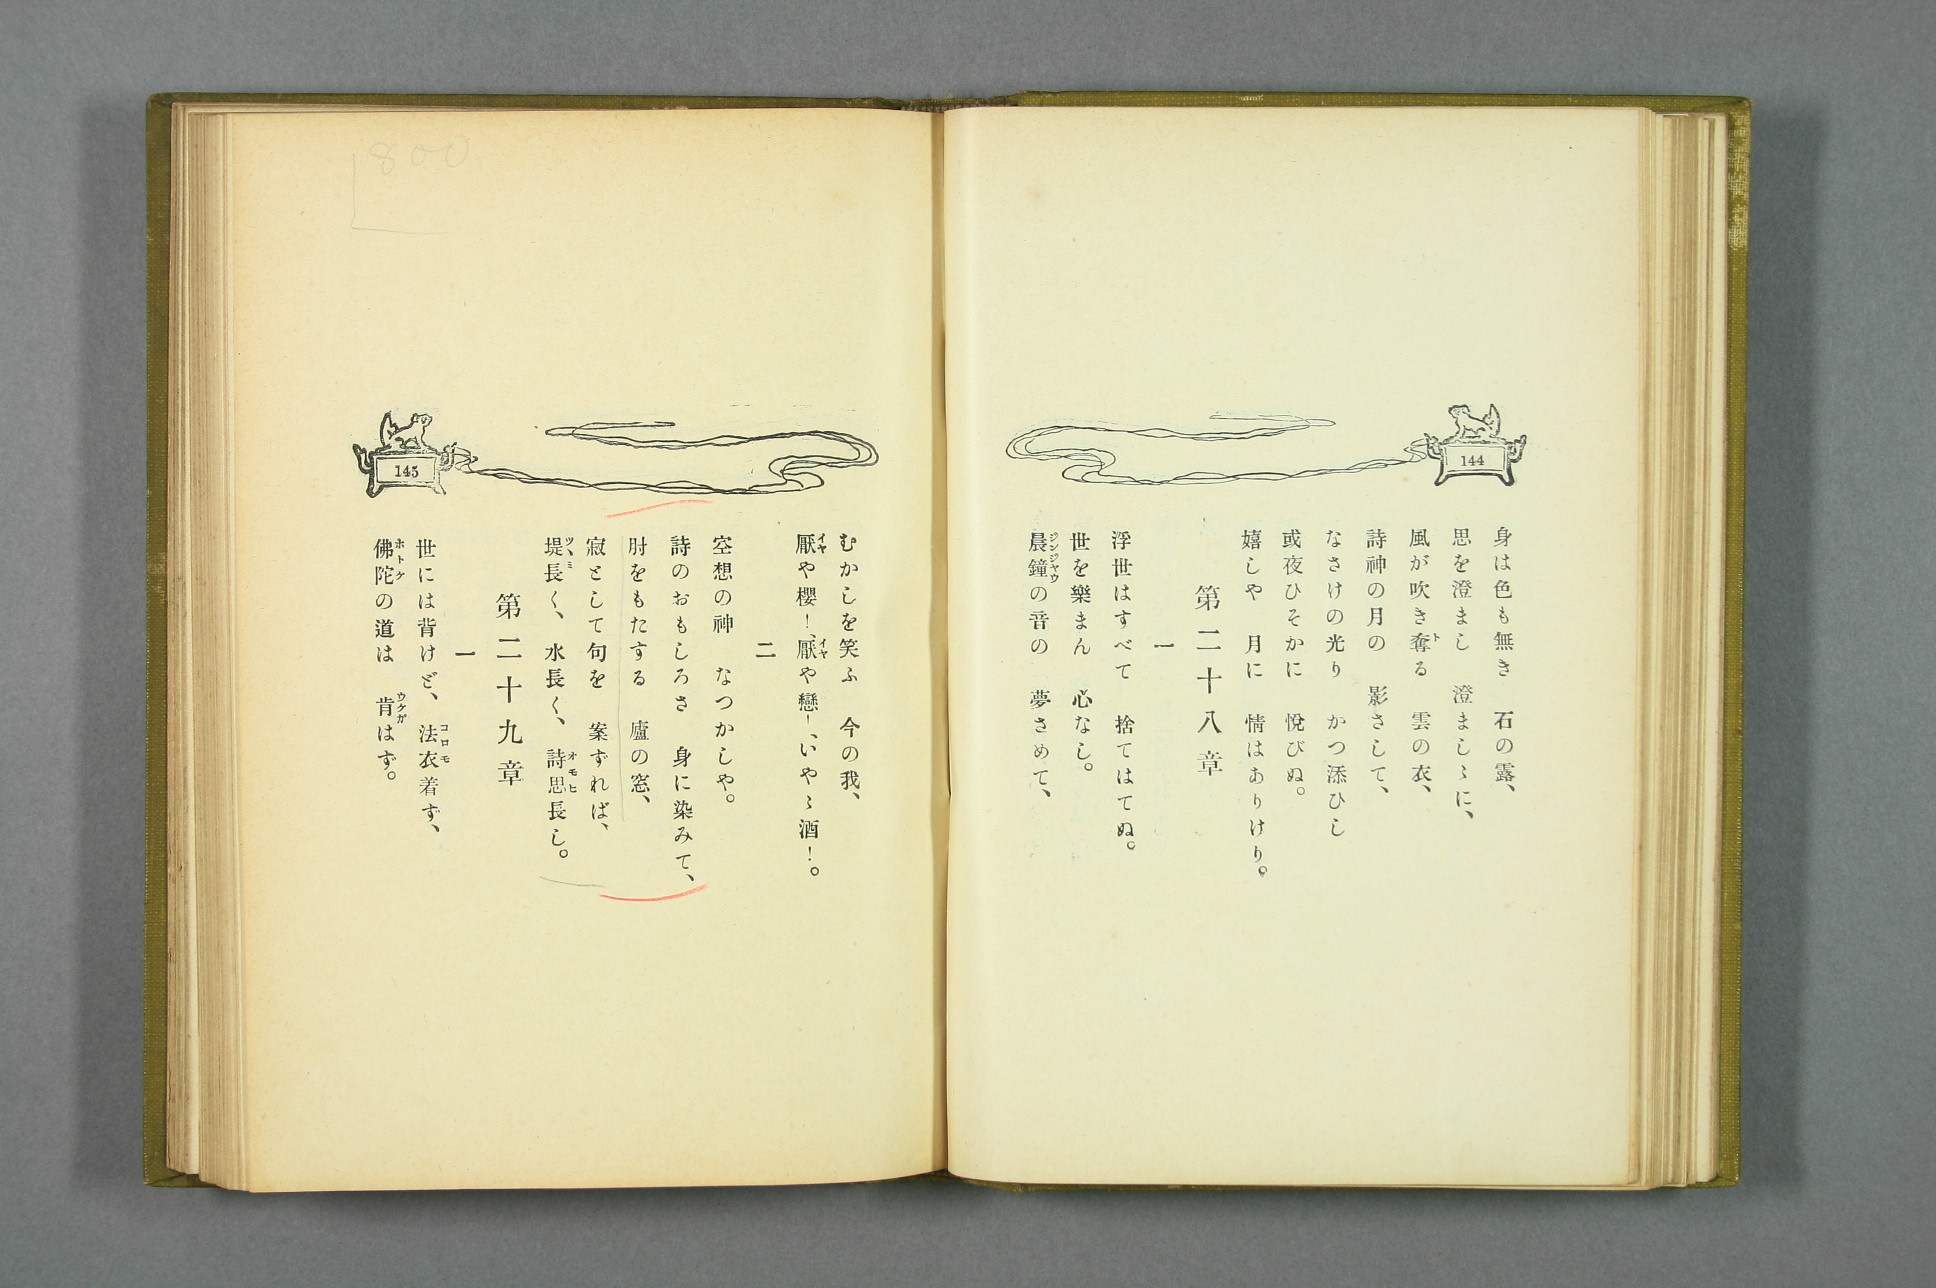 144
身は色も無き　石の露、
思を澄まし　澄ましゝに、
風が吹き奪る　雲の衣、
詩神の月の　影さして、
なさけの光り　かつ添ひし
或夜ひそかに　悦びぬ。
嬉しや　月に　情はありけり。
第二十八章
一
浮世はすべて　捨てはてぬ。
世を樂まん　心なし。
晨鐘の音の　夢さめて、
145
むかしを笑ふ　今の我、
厭や櫻！、厭や戀！、いやゝ酒！。
二
空想の神　なつかしや。
詩のおもしろさ　身に染みて、
肘をもたする　廬の窓、
寂として句を　案ずれば、
堤長く、水長く、詩思長し。
第二十九章
一
世には背けど、法衣着ず、
佛陀の道は　肯はず。
800